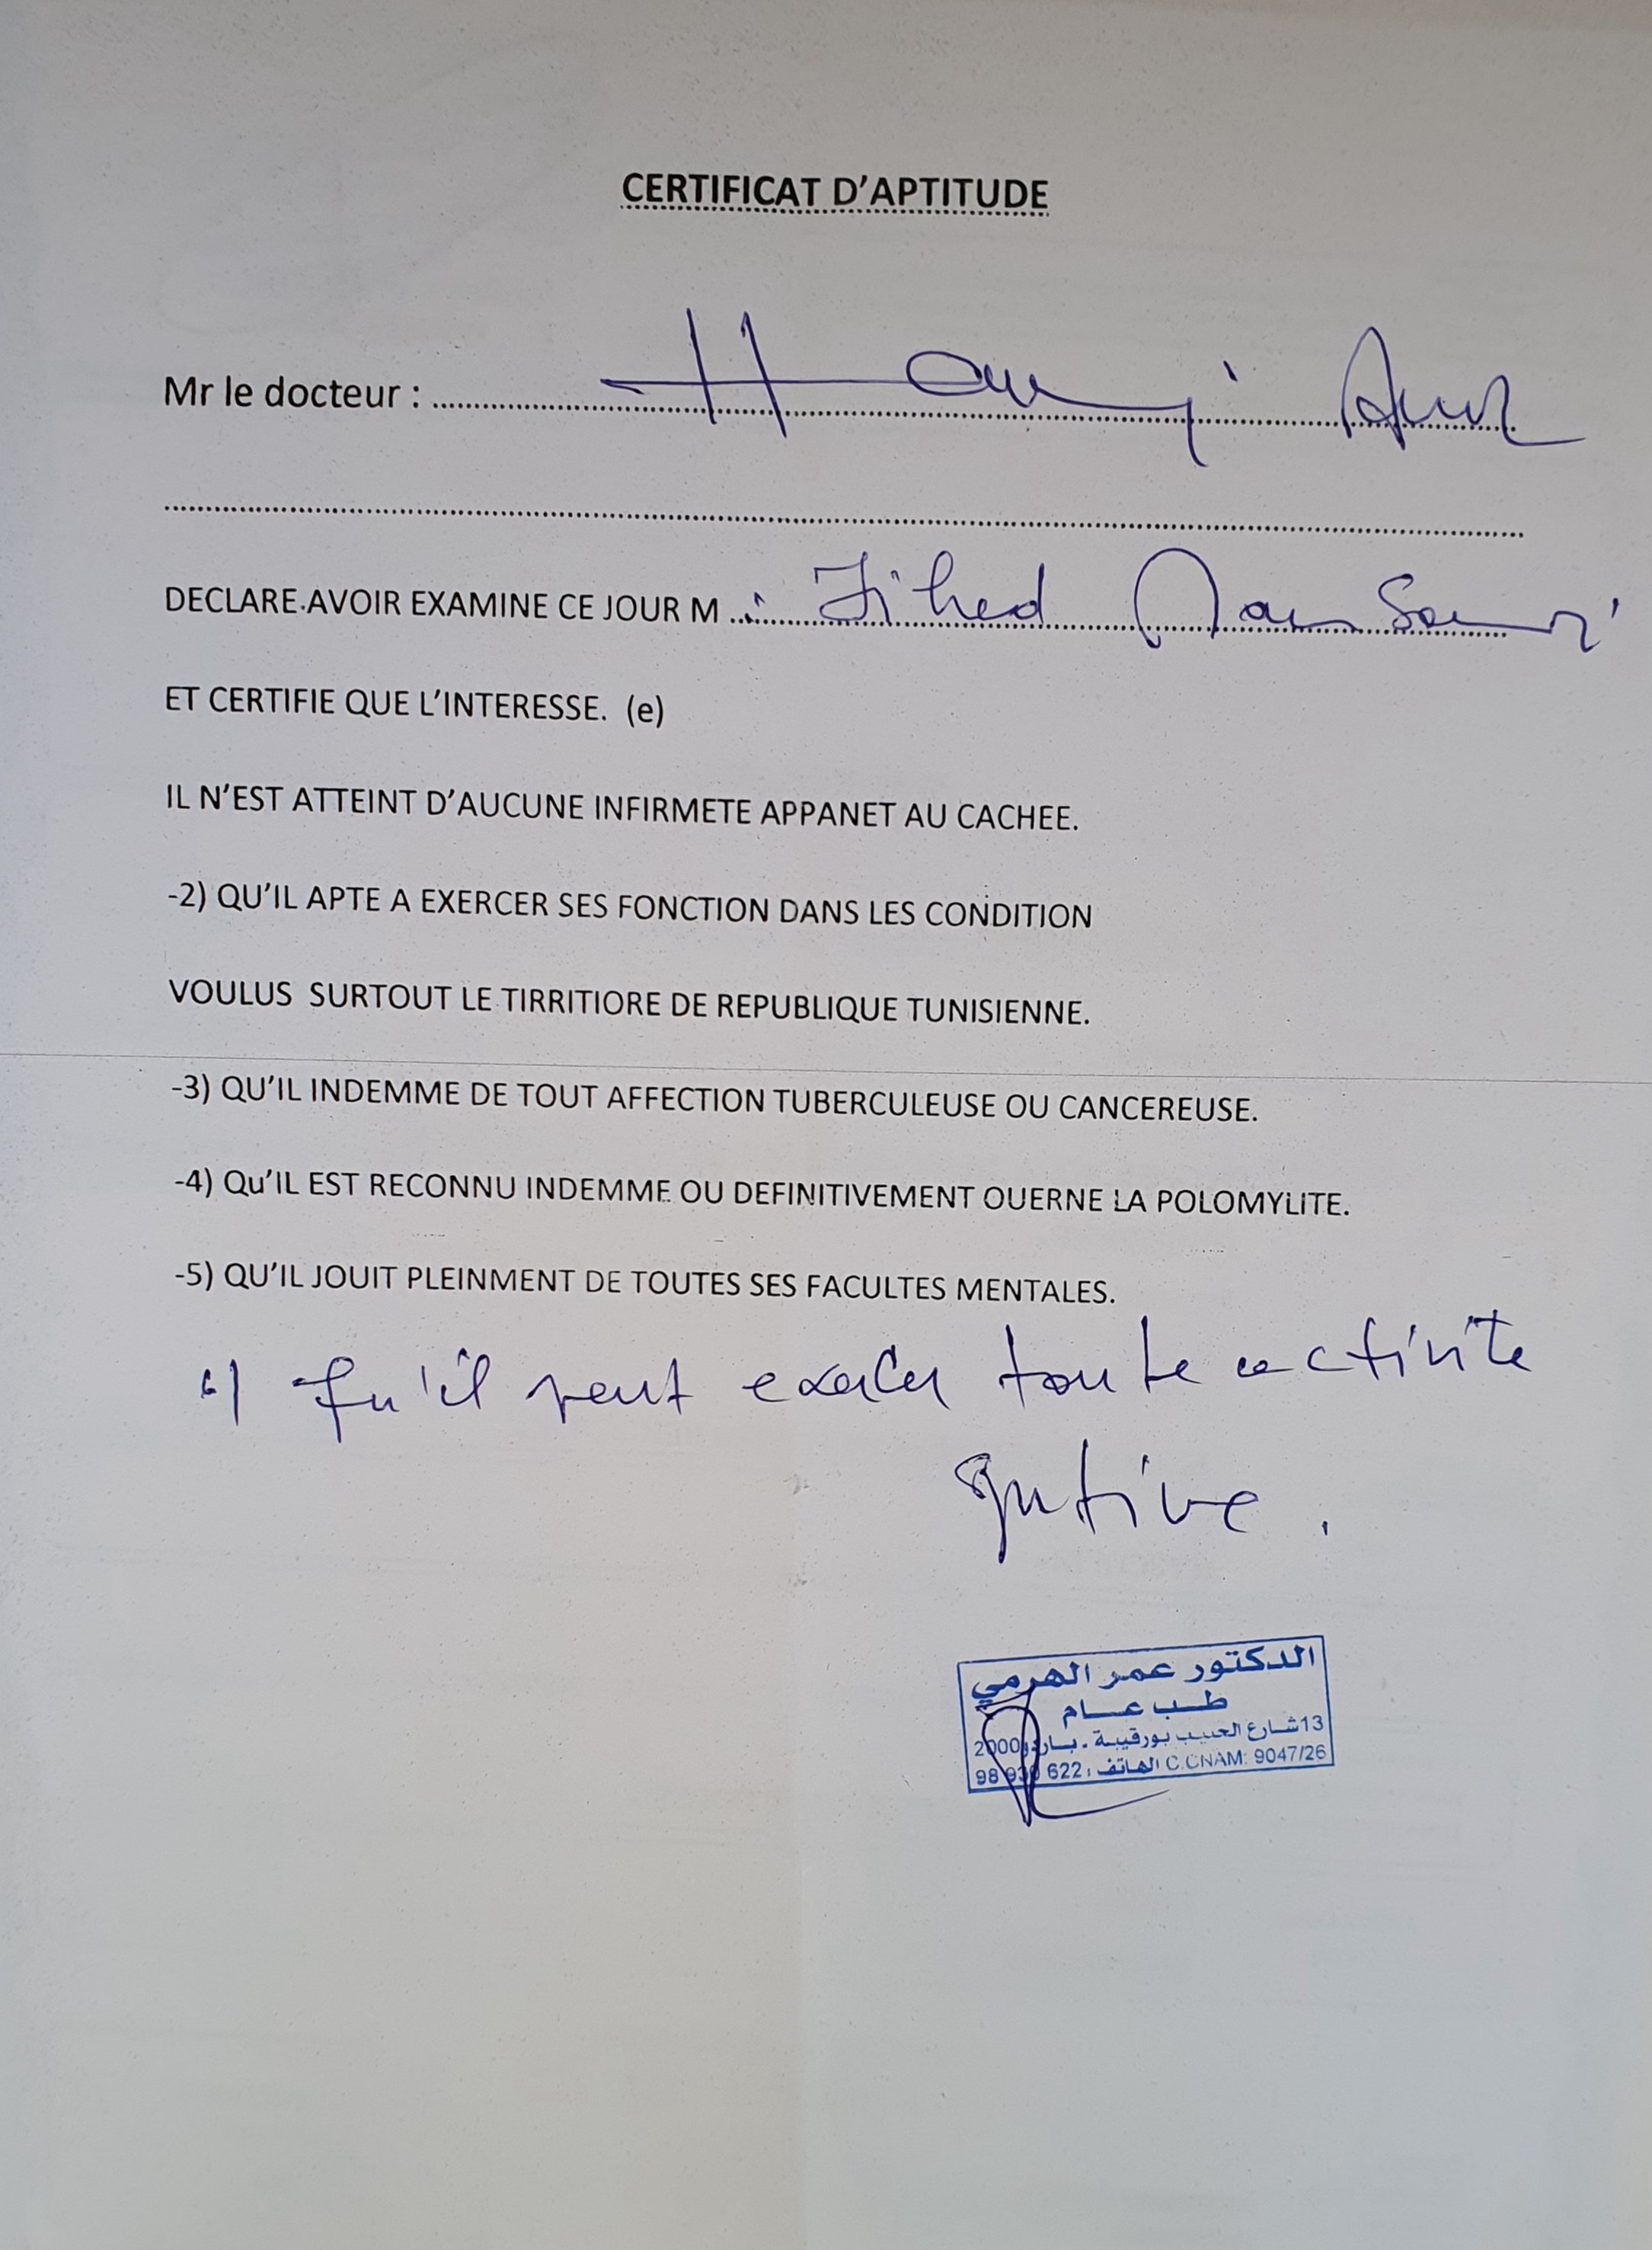 CERTIFICAT D'APTITUDE
Mr le docteur :
DECLARE AVOIR EXAMINE CE JOUR M : Jihed Mansouri
ET CERTIFIE QUE L'INTERESSE. (e)
IL N'EST ATTEINT D'AUCUNE INFIRMETE APPANET AU CACHEE.
-2) QU'IL APTE A EXERCER SES FONCTION DANS LES CONDITION
VOULUS SURTOUT LE TIRRITIORE DE REPUBLIQUE TUNISIENNE.
-3) QU'IL INDEMME DE TOUT AFFECTION TUBERCULEUSE OU CANCEREUSE.
-4) Qu'IL EST RECONNU INDEMME OU DEFINITIVEMENT OUERNE LA POLOMYLITE.
-5) QU'IL JOUIT PLEINMENT DE TOUTES SES FACULTES MENTALES.
6) qu'il peut exercer toute activite
sportive.
الدكتور عمر الهرمي
طب عام
13 شارع الحبيب بورقيبة . باردو 2000
C.CNAM: 9047/26 الهاتف : 98 930 622